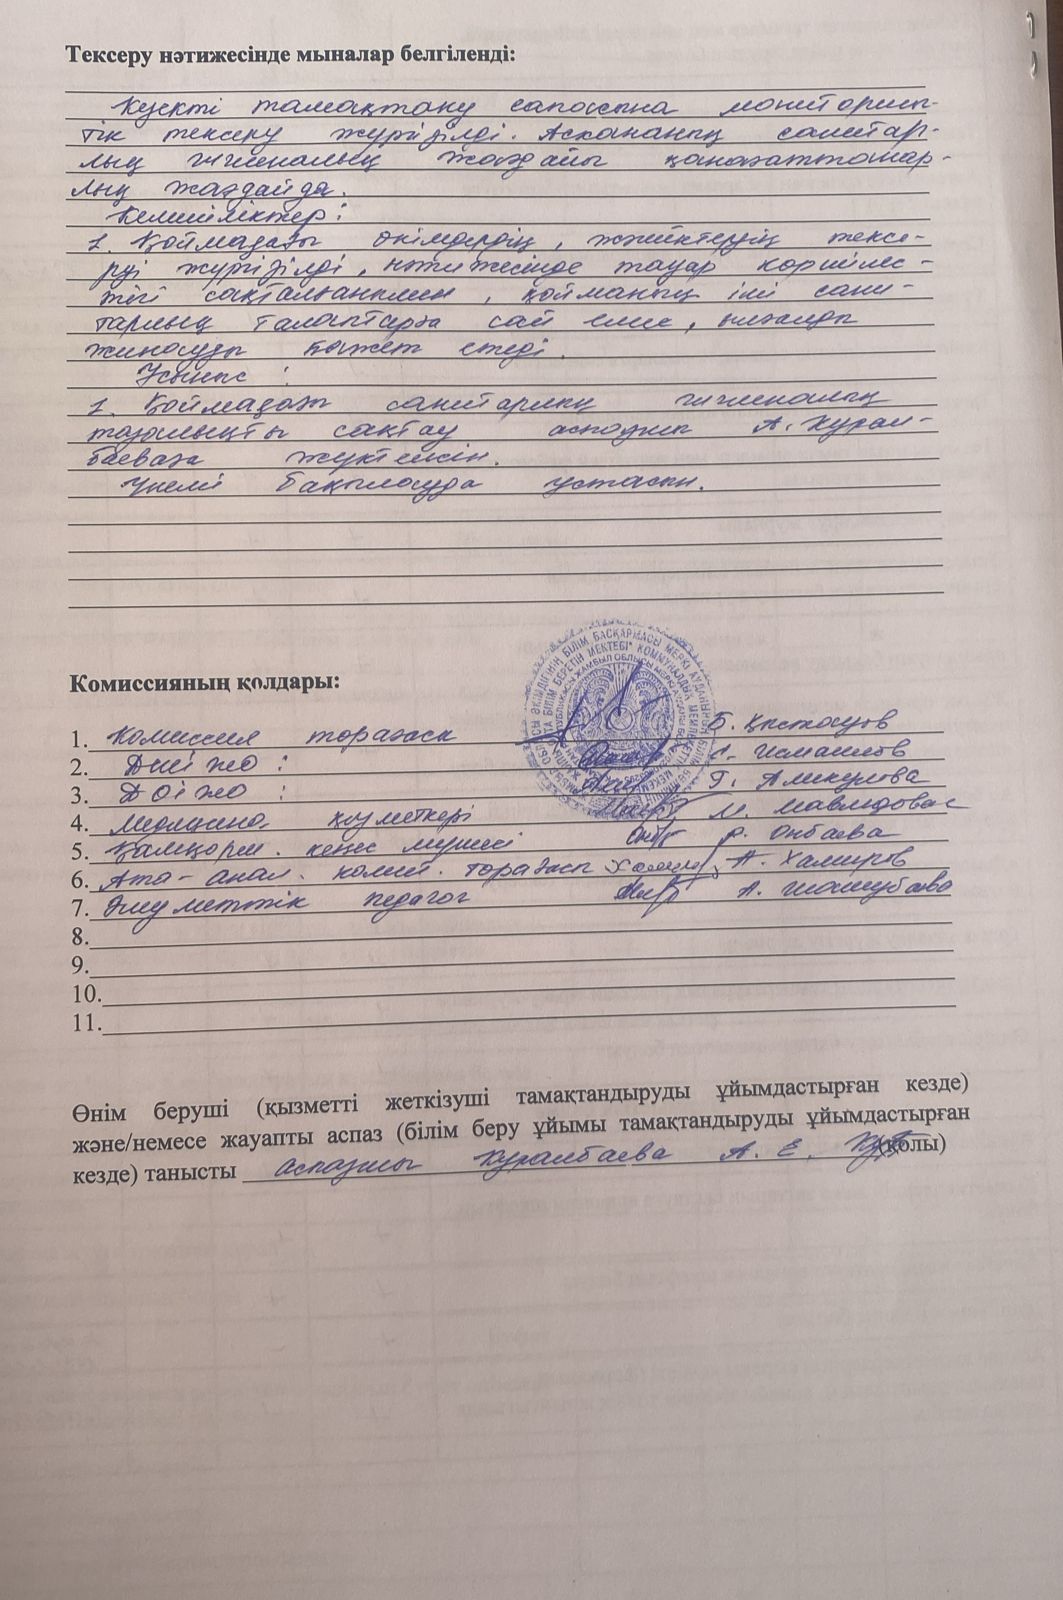 Тексеру нәтижесінде мыналар белгіленді:
Күнкті тамақтану сапасына мониторинг-
тік тексеру жүргізілді. Асхананың санитар-
лық гигиеналық жағдайы қанағаттанар-
лық жағдайда.
Кемшіліктер:
1. Қоймадағы өнімдердің, тексе-
руі жүргізілді, нәтижесінде тауар көршілес-
тігі сақталғанымен, қойманың іші сани-
тарлық талаптарға сай емес, ылғалды
жинауды қажет етеді.
Ұсыныс:
1. Қоймадағы санитарлық гигиеналық
тазалықты сақтау аспазшы А. Курал-
баеваға жүктелсін.
Үнемі бақылауда ұстасын.
Комиссияның қолдары:
1. Комиссия төрағасы Б. Қыстауов
2. ДШІЖО: С. Исмаилов
3. ДОІЖО: Г. Аликулова
4. Медицина қызметкері М. Мавлюдова
5. Қамқорш. кеңес мүшесі Р. Онбаева
6. Ата-анал. комит. төрағасы А. Хамиров
7. Әлеуметтік педагог А. Шошубаева
8.
9.
10.
11.
Өнім беруші (қызметті жеткізуші тамақтандыруды ұйымдастырған кезде)
және/немесе жауапты аспаз (білім беру ұйымы тамақтандыруды ұйымдастырған
кезде) танысты аспазшы Куралбаева А. Е. (қолы)